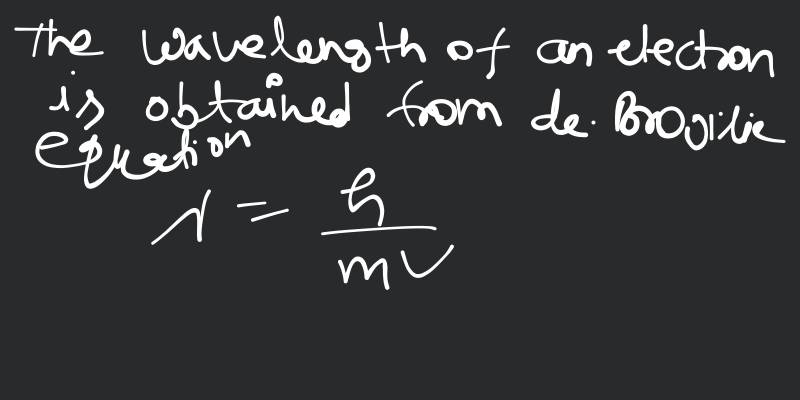 The wavelength of an electron
is obtained from de. Brogilie
equation
λ = h
mv